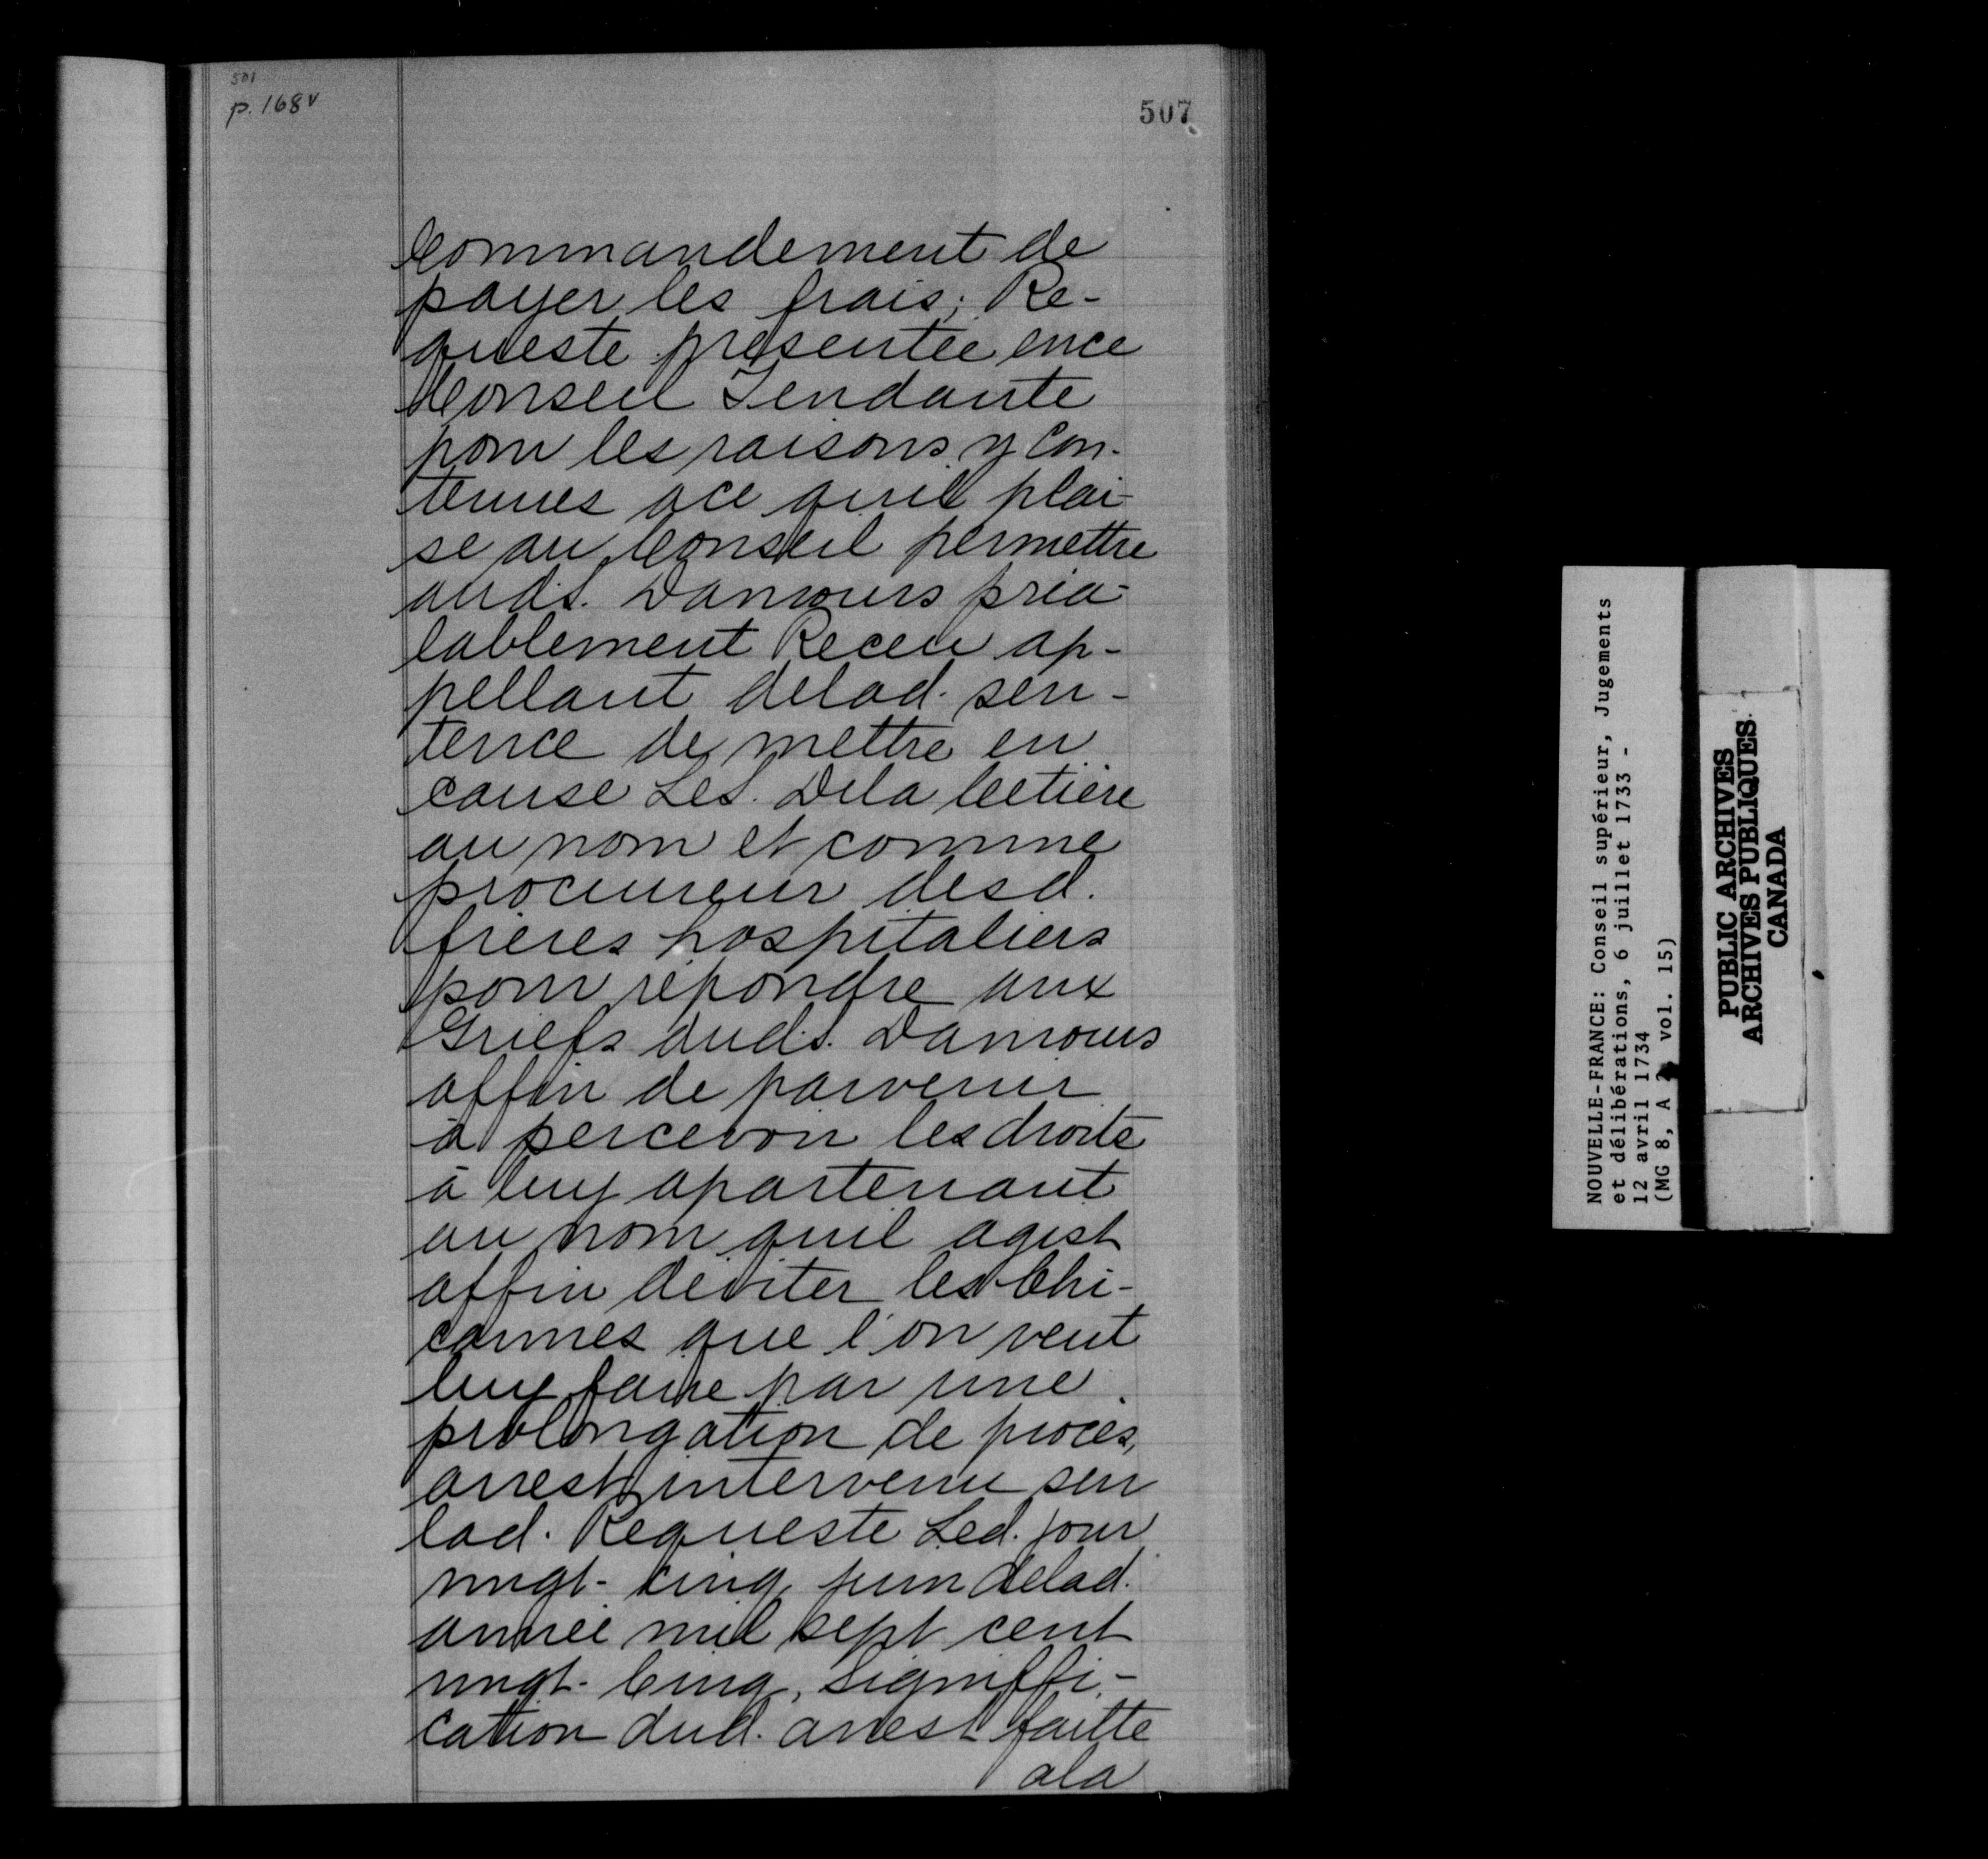 501
p. 168v
507
Commandement de
payer les frais; Re-
queste presentée ence
Conseil Tendante
pour les raisons y Con-
tenues ace quil plai-
se au Conseil permettre
aud. S. Damours préa-
lablement Receu ap-
pellant delad. sen-
tence de mettre en
cause Le S. Dela Cetière
au nom et comme
procureur desd.
frères hospitaliers
pour répondre aux
Griefs dud. S. Damours
affin de parvenir
à percevoir les droits
à luy apartenant
au nom quil agist
affin déviter les Chi-
cannes que l'on veut
luy faire par une
prolongation de procès,
arrest intervenu sur
lad. Requeste Led. jour
vingt-cinq juin delad.
année mil sept cent
vingt-Cinq, signiffi-
cation dud. arrest faitte
ala
NOUVELLE-FRANCE: Conseil supérieur, Jugements
et délibérations, 6 juillet 1733 -
12 avril 1734
(MG 8, A 2, vol. 15)
PUBLIC ARCHIVES
ARCHIVES PUBLIQUES
CANADA